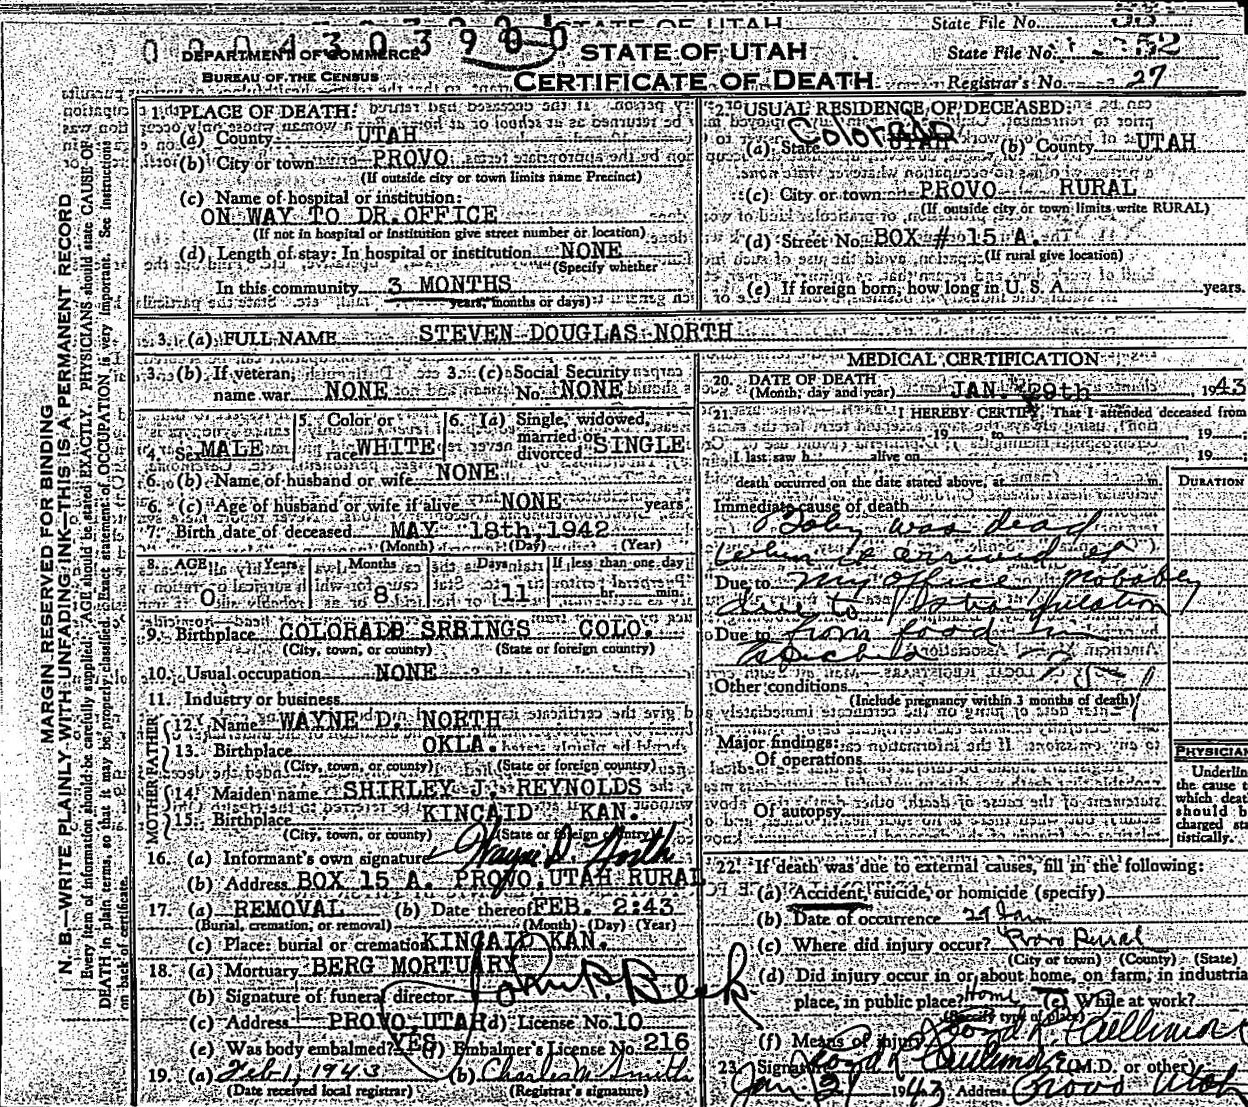 STATE OF UTAH
State File No.
0 0 0 4 3 0 3 9 0 0
DEPARTMENT OF COMMERCE
BUREAU OF THE CENSUS
STATE OF UTAH
CERTIFICATE OF DEATH
State File No. 52
Registrar's No. 27
MARGIN RESERVED FOR BINDING
N. B.—WRITE PLAINLY, WITH UNFADING INK—THIS IS A PERMANENT RECORD
Every item of information should be carefully supplied. AGE should be stated EXACTLY. PHYSICIANS should state CAUSE OF
DEATH in plain terms, so that it may be properly classified. Exact statement of OCCUPATION is very important. See instructions
on back of certificate.
1. PLACE OF DEATH:
(a) County UTAH
(b) City or town PROVO
(If outside city or town limits name Precinct)
(c) Name of hospital or institution:
ON WAY TO DR. OFFICE
(If not in hospital or institution give street number or location)
(d) Length of stay: In hospital or institution NONE
(Specify whether
In this community 3 MONTHS
years, months or days)
2. USUAL RESIDENCE OF DECEASED:
(a) State Colorado UTAH (b) County UTAH
(c) City or town PROVO RURAL
(If outside city or town limits, write RURAL)
(d) Street No. BOX # 15 A.
(If rural give location)
(e) If foreign born, how long in U. S. A. years.
3. (a) FULL NAME STEVEN DOUGLAS NORTH
3. (b) If veteran, name war NONE
3. (c) Social Security No. NONE
4. Sex MALE
5. Color or race WHITE
6. (a) Single, widowed, married or divorced SINGLE
6. (b) Name of husband or wife NONE
6. (c) Age of husband or wife if alive NONE years
7. Birth date of deceased MAY 18th, 1942
(Month) (Day) (Year)
8. AGE Years 0 Months 8 Days 11 If less than one day hr. min.
9. Birthplace COLORADO SPRINGS COLO.
(City, town, or county) (State or foreign country)
10. Usual occupation NONE
11. Industry or business
FATHER
12. Name WAYNE D. NORTH
13. Birthplace OKLA.
(City, town, or county) (State or foreign country)
MOTHER
14. Maiden name SHIRLEY J. REYNOLDS
15. Birthplace KINCAID KAN.
(City, town, or county) (State or foreign country)
16. (a) Informant's own signature Wayne D North
(b) Address BOX 15 A. PROVO, UTAH RURAL
17. (a) REMOVAL (b) Date thereof FEB. 2:43
(Burial, cremation, or removal) (Month) (Day) (Year)
(c) Place: burial or cremation KINCAID KAN.
18. (a) Mortuary BERG MORTUARY
(b) Signature of funeral director
(c) Address PROVO, UTAH (d) License No. 10
(e) Was body embalmed? YES (f) Embalmer's License No. 216
19. (a) Feb 1, 1943 (b) Charles M Smith
(Date received local registrar) (Registrar's signature)
MEDICAL CERTIFICATION
20. DATE OF DEATH
(Month, day and year) JAN. 29th 1943
21. I HEREBY CERTIFY, That I attended deceased from
, 19 , to , 19
I last saw h alive on , 19
death occurred on the date stated above, at m.
DURATION
Immediate cause of death
Baby was dead
when it arrived at
Due to my office Probably
due to strangulation
Due to from food in
Other conditions
(Include pregnancy within 3 months of death)
Major findings:
Of operations
Of autopsy
PHYSICIAN
Underlin
the cause t
which deat
should b
charged sta
tistically.
22. If death was due to external causes, fill in the following:
(a) Accident, suicide, or homicide (specify)
(b) Date of occurrence 29 Jan
(c) Where did injury occur? Provo Rural
(City or town) (County) (State)
(d) Did injury occur in or about home, on farm, in industria
place, in public place? Home (e) While at work?
(Specify type of place)
(f) Means of injury
23. Signature (M.D. or other)
Jan 31 1943 Address Provo Utah